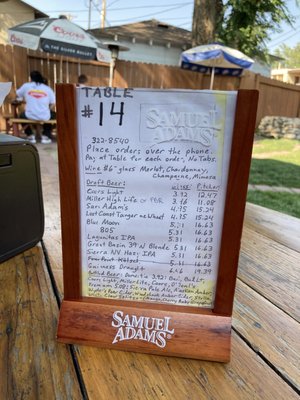 Coors
the SILVER BULLET
TABLE
# 14
SAMUEL
ADAMS
322-8540
Place orders over the phone.
Pay at Table for each order, No Tabs.
Wine $6- glass Merlot, Chardonnay,
Champagne, Mimosa
Draft Beer: Pitcher
Coors Light 3.92 12.47
Miller High Life or PBR 3.46 11.08
Sam Adams 4.75 15.24
Lost Coast Tangerine Wheat 4.75 15.24
Blue Moon 5.21 16.63
805 5.31 16.63
Lagunitas IPA 5.31 16.63
Great Basin 39 N Blonde 5.31 16.63
Sierra NV Hazy IPA 5.31 16.63
5.31 16.63
Guinness Draught 6.16 19.39
Bottled Beer: Domestic 3.92: Bud, Bud Lt,
Coors Light, Miller Lite, Coors, O'Doul's
Premium 5.08: Sierra Pale Ale,
SAMUEL
ADAMS